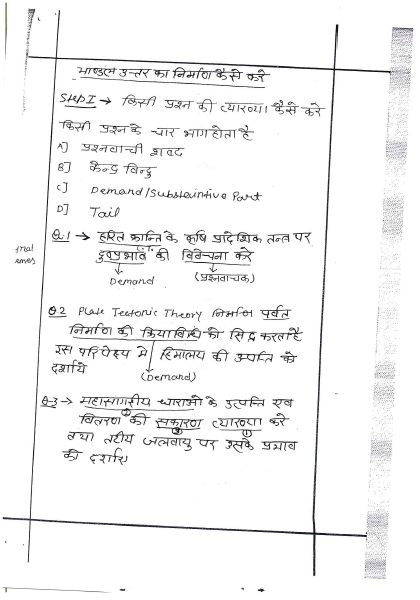 माण्डल उत्तर का निर्माण कैसे करे
Step I → किसी प्रश्न की व्याख्या कैसे करे
किसी प्रश्न के चार भाग होता है
A] प्रश्नवाची शब्द
B] केन्द्र विन्दु
C] Demand/Substaintive Part
D] Tail
Q.1 → हरित क्रान्ति के कृषि प्रादेशिक तन्त्र पर
दुष्प्रभावों की विवेचना करे
Demand (प्रश्नवाचक)
Q.2 Plate Testonic Theory निर्माण पर्वत
निर्माण की क्रियाविधि को सिद्ध करता है
इस परिपेक्ष्य में हिमालय की उत्पति को
दर्शाये
(Demand)
Q.3 → महासागरीय धाराओ के उत्पन्ति एव
वितरण की सकारण व्याख्या करे
तथा तटीय जलवायु पर उसके प्रभाव
को दर्शाए